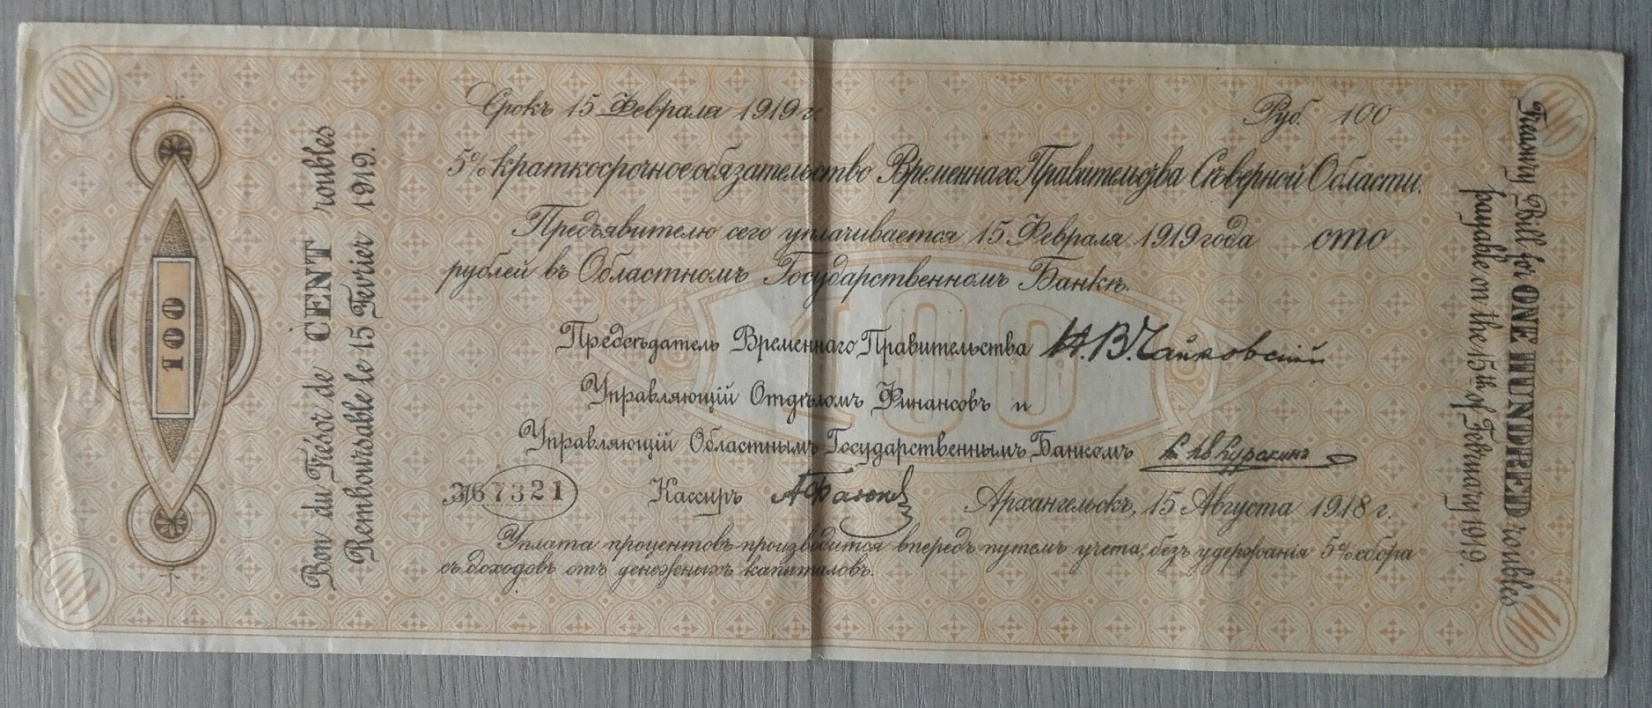 100
100
Срокъ 15 Февраля 1919 г.
Руб. 100
5% краткосрочное обязательство Временнаго Правительства Сѣверной Области.
Предъявителю сего уплачивается 15 Февраля 1919 года сто
рублей въ Областномъ Государственномъ Банкѣ.
Предсѣдатель Временнаго Правительства Н.В.Чайковскій
Управляющій Отдѣломъ Финансовъ и
Управляющій Областнымъ Государственнымъ Банкомъ Куракинъ
№67321
Кассиръ
Архангельскъ, 15 Августа 1918 г.
Уплата процентовъ производится впередъ путемъ учета, безъ удержанія 5% сбора
съ доходовъ отъ денежныхъ капиталовъ.
100
100
Bon du Trésor de CENT roubles
Remboursable le 15 Fevrier 1919.
100
100
Treasury Bill for ONE HUNDRED roubles
payable on the 15th of February 1919.